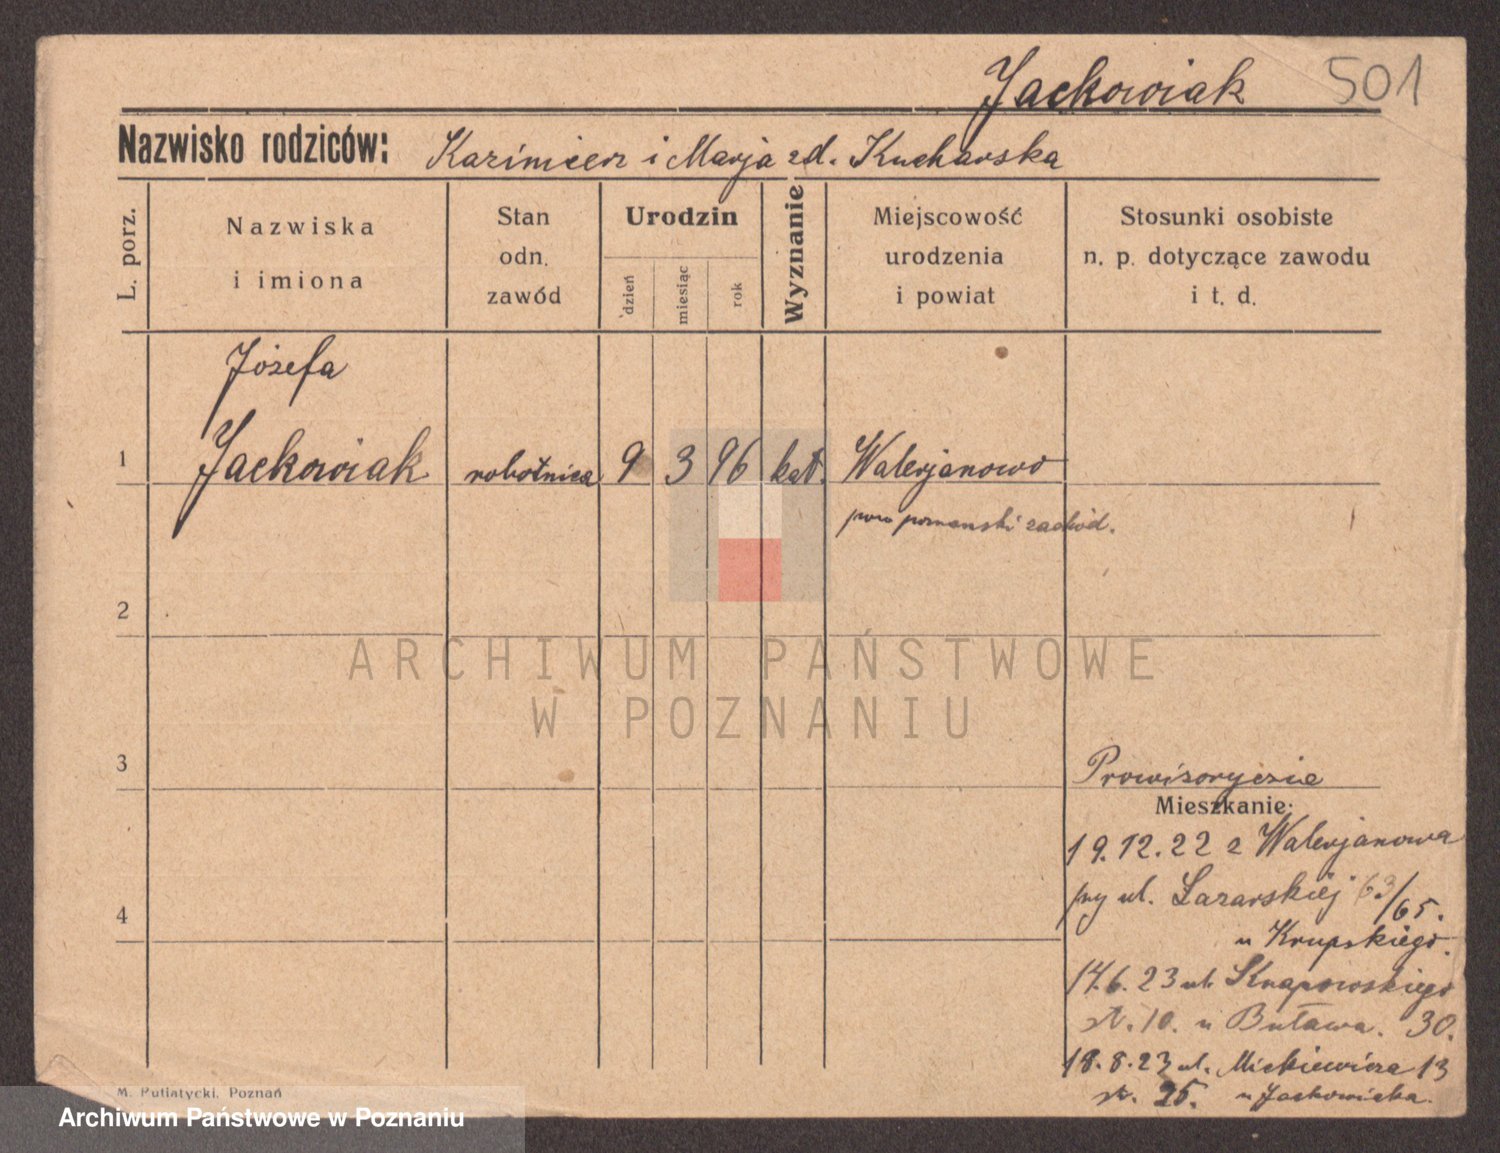 Jackowiak 501
Nazwisko rodziców: Kazimierz i Marja zd. Kucharska
L. porz.
Nazwiska
i imiona
Stan
odn.
zawód
Urodzin
dzień
miesiąc
rok
Wyznanie
Miejscowość
urodzenia
i powiat
Stosunki osobiste
n. p. dotyczące zawodu
i t. d.
Józefa
1 Jackowiak robotnica 9 3 96 kat. Walerjanowo
pow poznanski zachód.
2
ARCHIWUM PAŃSTWOWE
W POZNANIU
3
Prowizorycznie
Mieszkanie:
19.12.22 z Walerjanowa
przy ul. Łazarskiej 63/65.
4
u Krupskiego.
14.6.23 ul. Knapowskiego
st. 10. u Buława. 30.
18.8.23 ul. Mickiewicza 13
st. 25. u
M. Putiatycki, Poznań
Archiwum Państwowe w Poznaniu